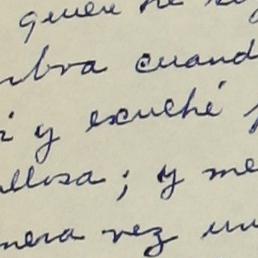 quien he
mbra cuand
i y escuché
llosa; y me
mera vez un